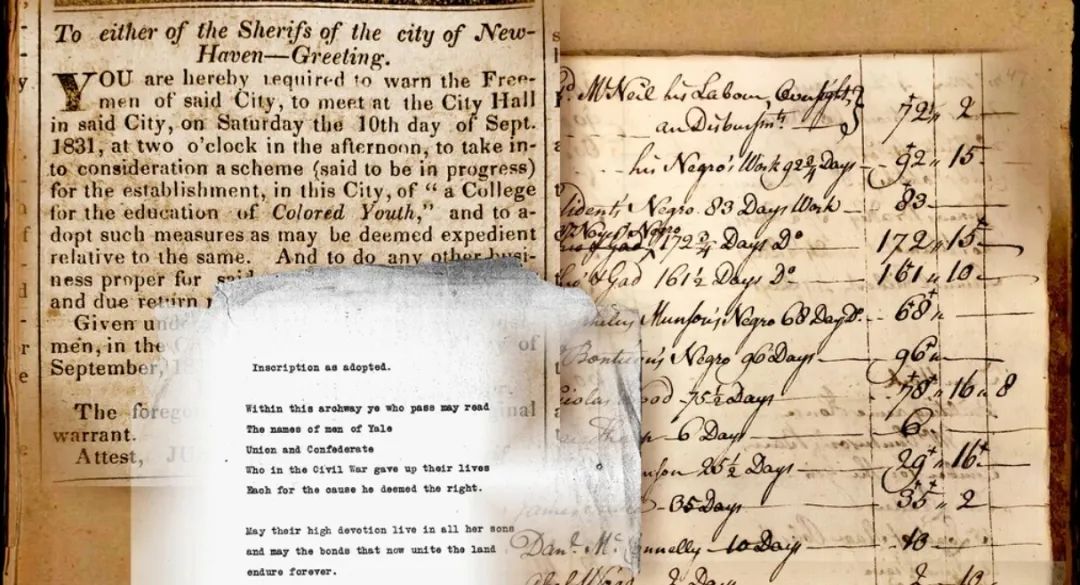 To either of the Sherifs of the city of New-
Haven—Greeting.
YOU are hereby required to warn the Free-
men of said City, to meet at the City Hall
in said City, on Saturday the 10th day of Sept.
1831, at two o'clock in the afternoon, to take in-
to consideration a scheme (said to be in progress)
for the establishment, in this City, of "a College
for the education of Colored Youth," and to a-
dopt such measures as may be deemed expedient
relative to the same. And to do any other busi-
ness proper for said
and due return
Given under
men, in the
September,
The foregoing
warrant.
Attest,
Inscription as adopted.
Within this archway ye who pass may read
The names of men of Yale
Union and Confederate
Who in the Civil War gave up their lives
Each for the cause he deemed the right.
May their high devotion live in all her sons
and may the bonds that now unite the land
endure forever.
McNeil his Labour, Oversight,
an Disbursmts. 72 " 2
his Negro's Work 92 3/4 Days 92 " 15
Negro 83 Days Work 83
Noyes's Negro
172 3/4 Days Do 172 " 15
& Gad 161 1/2 Days Do 161 " 10
Munson's Negro 68 Days Do. 68 "
Negro 96 Days 96 "
75 1/2 Days 78 " 16 " 8
6 Days 6
25 1/2 Days 29 " 16
35 Days 35 " 2
Danl. Mc nnelly 10 Days 10
2 Days 2 10